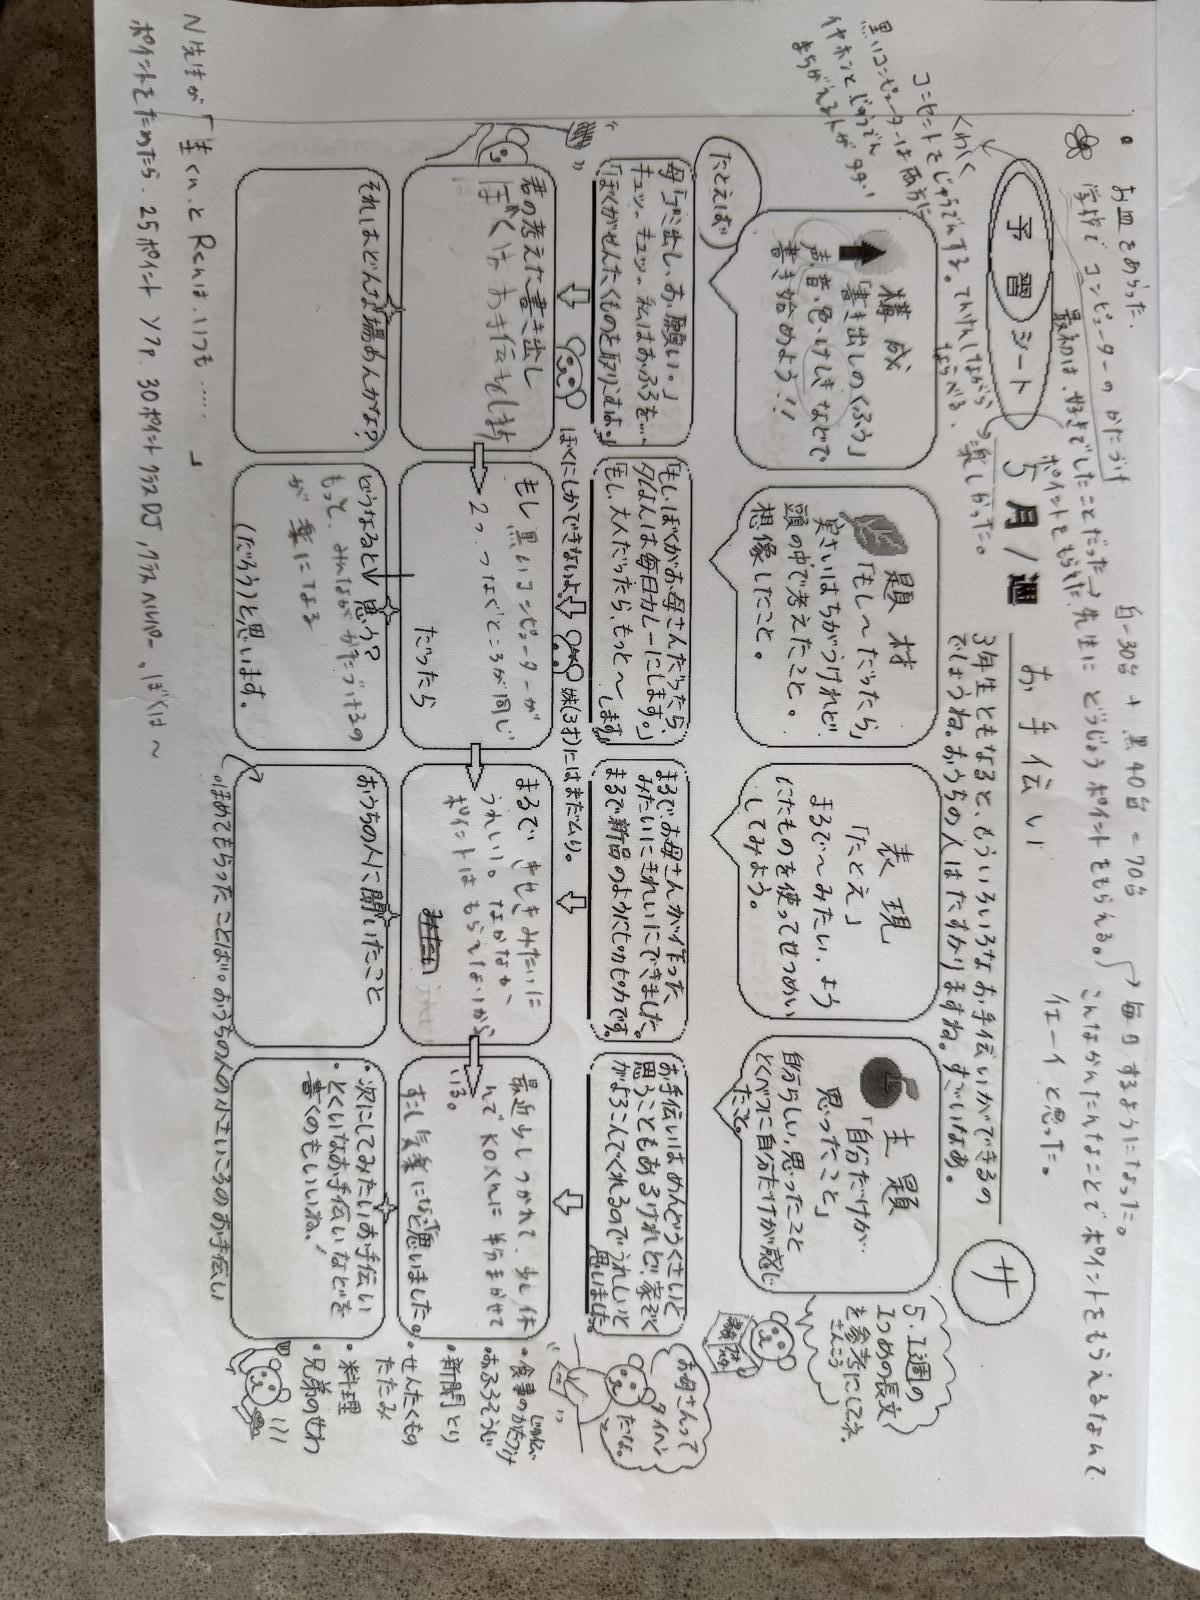 お皿をあらった.
学校でコンピューターのかたづけ
最初は、好きでしたことだった→先生にどうじょうポイントをもらえる。
毎日するようになった。
白-30台 + 黒40台 = 70台
ポイントをもらえた.
こんなかんたんなことでポイントをもらえるなんて
イエーイと思った。
予習シート
5月1週
お手伝い
サ
3年生ともなると、もういろいろなお手伝いができるの
でしょうね。おうちの人はたすかりますね。すごいなあ。
くわしく
コンセントをじゅうでんする。てんけんしながら
ならべる.
楽しかった。
黒いコンピューターは両方に
イヤホンとじゅうでん
まちがえる人が多い
構成
「書き出しのくふう」
声、音、色、けしきなどで
書き始めよう!!
題材
「もし〜だったら」
実さいはちがうけれど、
頭の中で考えたこと。
想像したこと。
表現
「たとえ」
まるで〜みたい、よう
にたものを使ってせつめい
してみよう。
主題
「自分だけが…
思ったこと」
自分らしい、思ったこと
とくべつに自分だけが感じ
たこと。
5.1週の
1つめの長文
を参考にしてネ。
さんこう
たとえば
母「ゴミ出し、お、願い。」
キュッ、キュッ。私はおふろを…
「ぼくがせんたくものを取りこむよ。」
「もし、ぼくがお母さんだったら、
夕ごはんは毎日カレーにします。」
「もし、大人だったら、もっと〜
します。」
まるでお母さんが作った
みたいにきれいにできました。
まるで新品のようにピカピカです。
お手伝いはめんどうくさいと
思うこともあるけれど、家ぞく
がよろこんでくれるのでうれしいと
思いました。
お母さんって
タイヘン
だな。
ぼくにしかできないよ。
妹(3才)にはまだムリ。
君の考えた書き出し
ぼくはお手伝をします
もし黒いコンピューターが
2つ、つなぐところが同じ
だったら
まるできせきみたいに
うれしい。なかなか、
ポイントはもらえないから
最近少しつかれて、少し休
んでKOくんに半分まかせて
いる。
すこし気楽になったと思いました。
・食事のかたづけ
じゅんび
・おふろそうじ
・新聞とり
・せんたくもの
たたみ
・料理
・兄弟のせわ
それはどんな場めんかな?
どうなると思う?
もっと、みんながかたづけるの
が楽になる
(だろう)と思います。
おうちの人に聞いたこと
・次にしてみたいお手伝い
・とくいなお手伝いなどを
書くのもいいね。!
ほめてもらったことば。おうちの人の小さいころのお手伝い
N先生が「生くんとRenは、いつも……」
ポイントをためたら、25ポイント ソファ、30ポイントクラスDJ,クラスヘルパー、ぼくは〜